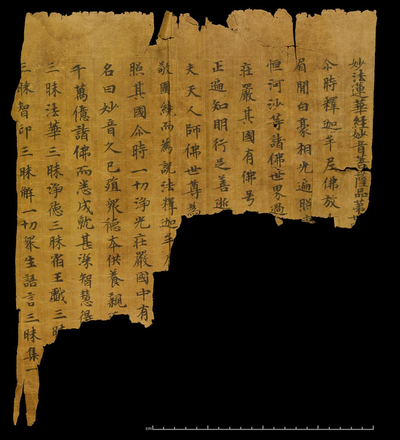 妙法蓮華經妙音菩薩品第
尒時釋迦牟尼佛放
眉間白豪相光遍照
恒河沙等諸佛世界過
莊嚴其國有佛号
正遍知明行足善逝
夫天人師佛世尊為
敬圍繞而為說法釋迦牟
照其國尒時一切淨光莊嚴國中有
名曰妙音久已殖眾德本供養親
千萬億諸佛而悉成就甚深智慧得
三昧法華三昧淨德三昧宿王戲三昧
三昧智印三昧解一切眾生語言三昧集一